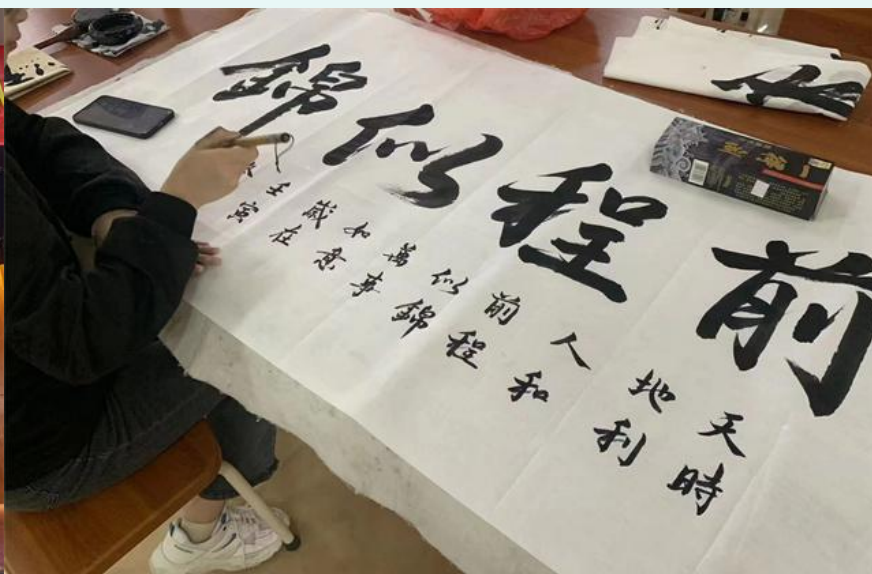 前程似錦
天時
地利
人和
前程
似錦
萬事
如意
歲在
壬寅